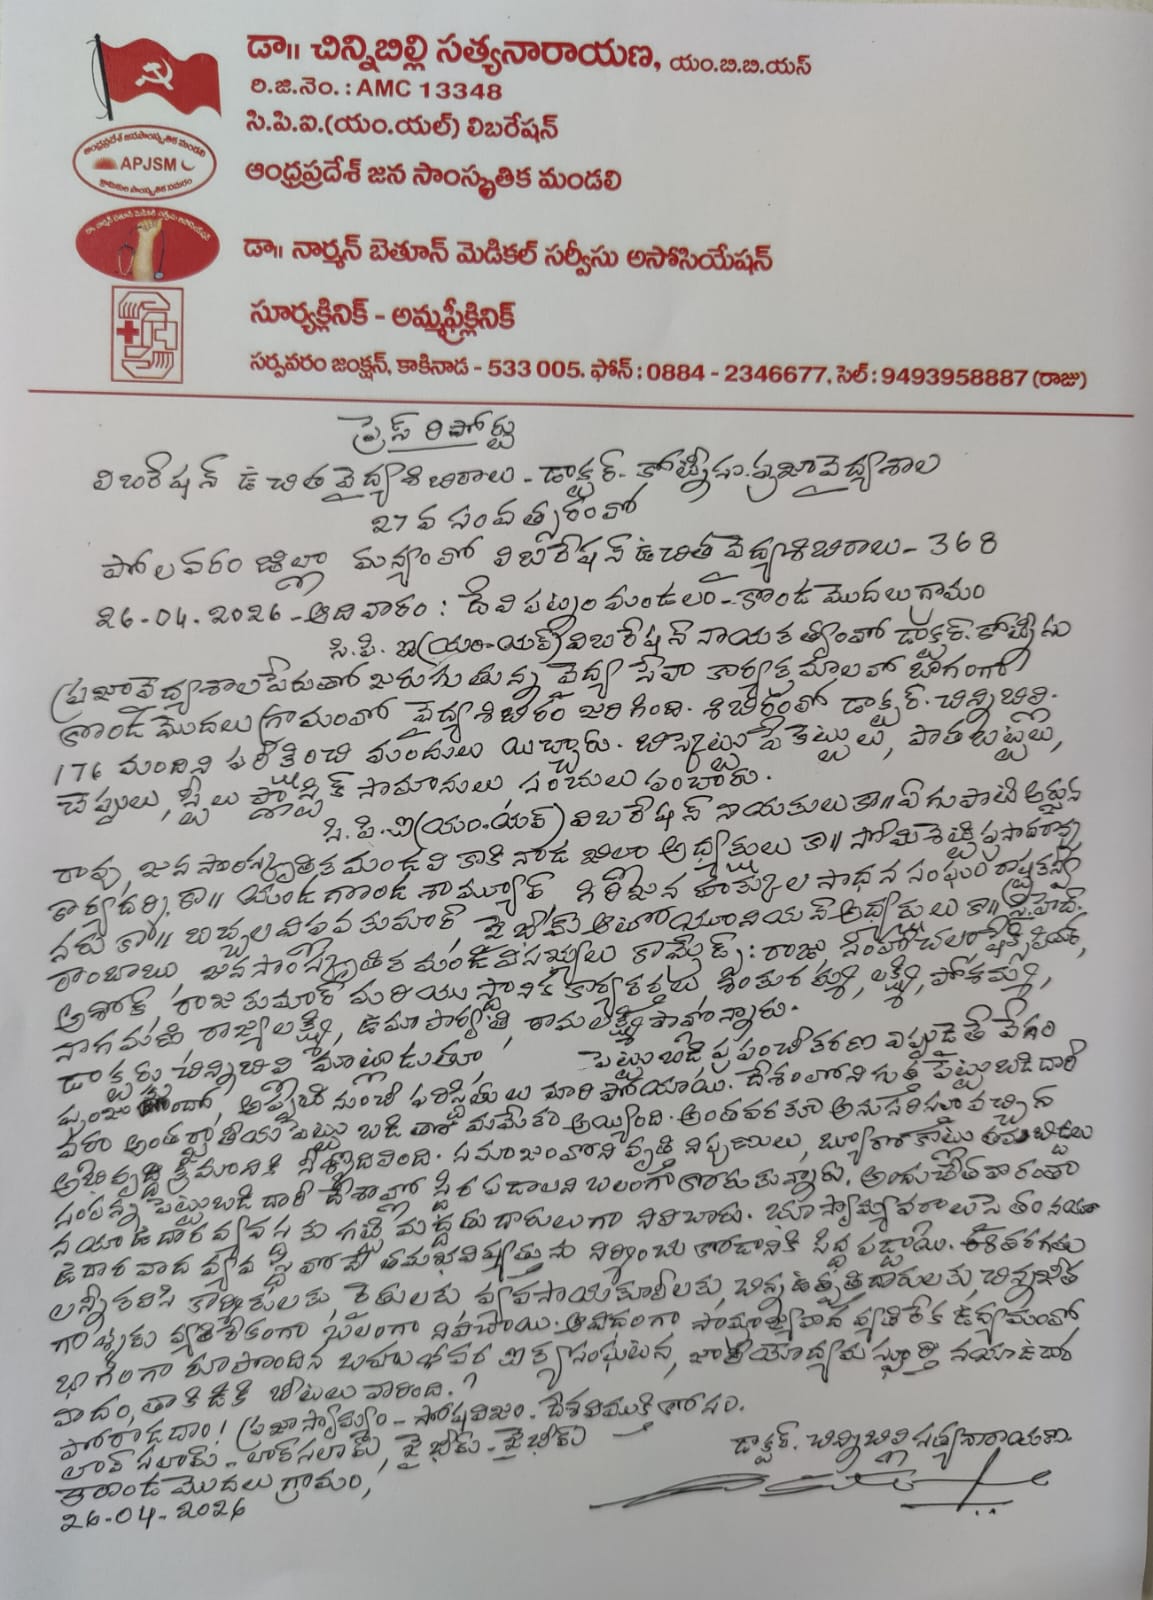 డా|| చిన్నిబిల్లి సత్యనారాయణ, యం.బి.బి.యస్
రి.జి.నెం. : AMC 13348
సి.పి.ఐ.(యం.యల్) లిబరేషన్
ఆంధ్రప్రదేశ్ జన సాంస్కృతిక మండలి
APJSM
ఆంధ్రప్రదేశ్ జన సాంస్కృతిక మండలి
డా|| నార్మన్ బెతూన్ మెడికల్ సర్వీసు అసోసియేషన్
సూర్యక్లినిక్ - అమ్మఫ్రీక్లినిక్
సర్పవరం జంక్షన్, కాకినాడ - 533 005. ఫోన్ : 0884 - 2346677, సెల్ : 9493958887 (రాజు)
ప్రెస్ రిపోర్టు
లిబరేషన్ ఉచిత వైద్యశిబిరాలు - డాక్టర్. కోట్నీసు. ప్రజావైద్యశాల
27 వ సంవత్సరంలో
పోలవరం జిల్లా మన్యంలో లిబరేషన్ ఉచిత వైద్యశిబిరాలు - 368
26-04-2026 - ఆదివారం : దేవిపట్నం మండలం - కొండమొదలు గ్రామం
సి.పి.ఐ(యం-యల్) లిబరేషన్ నాయకత్వంలో డాక్టర్. కోట్నీసు
ప్రజావైద్యశాల పేరుతో జరుగుతున్న వైద్య సేవా కార్యక్రమాలలో భాగంగా
కొండమొదలు గ్రామంలో వైద్యశిబిరం జరిగింది. శిబిరంలో డాక్టర్. చిన్నిబిల్లి.
176 మందిని పరీక్షించి మందులు యిచ్చారు. బిస్కెట్టు పేకెట్లు, పాతబట్టలు,
చెప్పులు, స్టీలు ప్లాస్టిక్ సామానులు, సంచులు పంచారు.
సి.పి.ఐ(యం.యల్) లిబరేషన్ నాయకులు కా|| ఏగుపాటి అర్జున
రావు, జన సాంస్కృతిక మండలి కాకినాడ జిల్లా అధ్యక్షులు కా|| సోమిశెట్టి ప్రసాదరావు
కార్యదర్శి కా|| యండగొండ శామ్యూల్ గిరిజన హక్కుల సాధన సంఘం రాష్ట్ర కన్వీ
నరు కా|| బచ్చల విజయకుమార్, జైభీమ్ ఆటో యూనియన్ అధ్యక్షులు కా|| సి.హెచ్.
రాంబాబు, జనసాంస్కృతిక మండలి సభ్యులు కామ్రేడ్స్ : రాజు, సింహాచలం,
అశోక్, రాజకుమార్ మరియు స్థానిక కార్యకర్తలు లక్ష్మి, పోశమ్మ,
నాగమణి రాజ్యలక్ష్మి, ఉమా పార్వతి, రామలక్ష్మి పాల్గొన్నారు.
డాక్టరు చిన్నిబిల్లి మాట్లాడుతూ, పెట్టుబడి ప్రపంచీకరణ ఎప్పుడైతే వేగం
పుంజుకుందో, అప్పటి నుంచి పరిస్థితులు మారి పోయాయి. దేశంలోని గుత్త పెట్టుబడిదారీ
వర్గం అంతర్జాతీయ పెట్టుబడితో మమేకం అయ్యింది. అంతవరకూ అనుసరిస్తూ వచ్చిన
అభివృద్ధి క్రమానికి సమాజంలోని వృత్తి నిపుణులు, బ్యూరోక్రాట్లు తమ బిడ్డలు
సంపన్న పెట్టుబడిదారీ దేశాల్లో స్థిర పడాలని బలంగా కోరుకున్నారు. అందుచేత వారంతా
నయా ఉదార వ్యవస్థకు గట్టి మద్దతుదారులుగా నిలిచారు. భూస్వామ్య వర్గాలు సైతం నయా
ఉదారవాద వ్యవస్థలోనే తమ భవిష్యత్తును నిర్మించుకోడానికి సిద్ధ పడ్డాయి. ఈ తరగతు
లన్నీ కలిసి కార్మికులకు, రైతులకు, వ్యవసాయ కూలీలకు, చిన్న ఉత్పత్తిదారులకు, చిన్న
వ్యతిరేకంగా బలంగా నిలిచాయి. ఆ విధంగా సామ్రాజ్యవాద వ్యతిరేక ఉద్యమంలో
భాగంగా రూపొందిన బహుళవర్గ ఐక్య సంఘటన, జాతీయోద్యమ స్ఫూర్తి నయా ఉదార
వాదం, తాకిడికి బీటలు వారింది.
పోరాడదాం! ప్రజాస్వామ్యం - సోషలిజం - దేశ విముక్తి కోసం.
లాల్ సలామ్ - లాల్ సలామ్, జై భీమ్ - జై భీమ్
డాక్టర్. చిన్నిబిల్లి సత్యనారాయణ.
కొండమొదలు గ్రామం,
26-04-2026